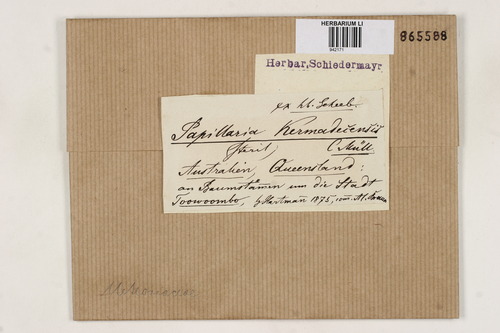 HERBARIUM LI
865588
Herbar. Schiedermayr
ex hb. Scheeb.
Papillaria Kermadecensis
steril, C. Müll.
Australien, Queensland:
an Baumstämen um die Stadt
Toowoombo, lg Hartman 1875, com.